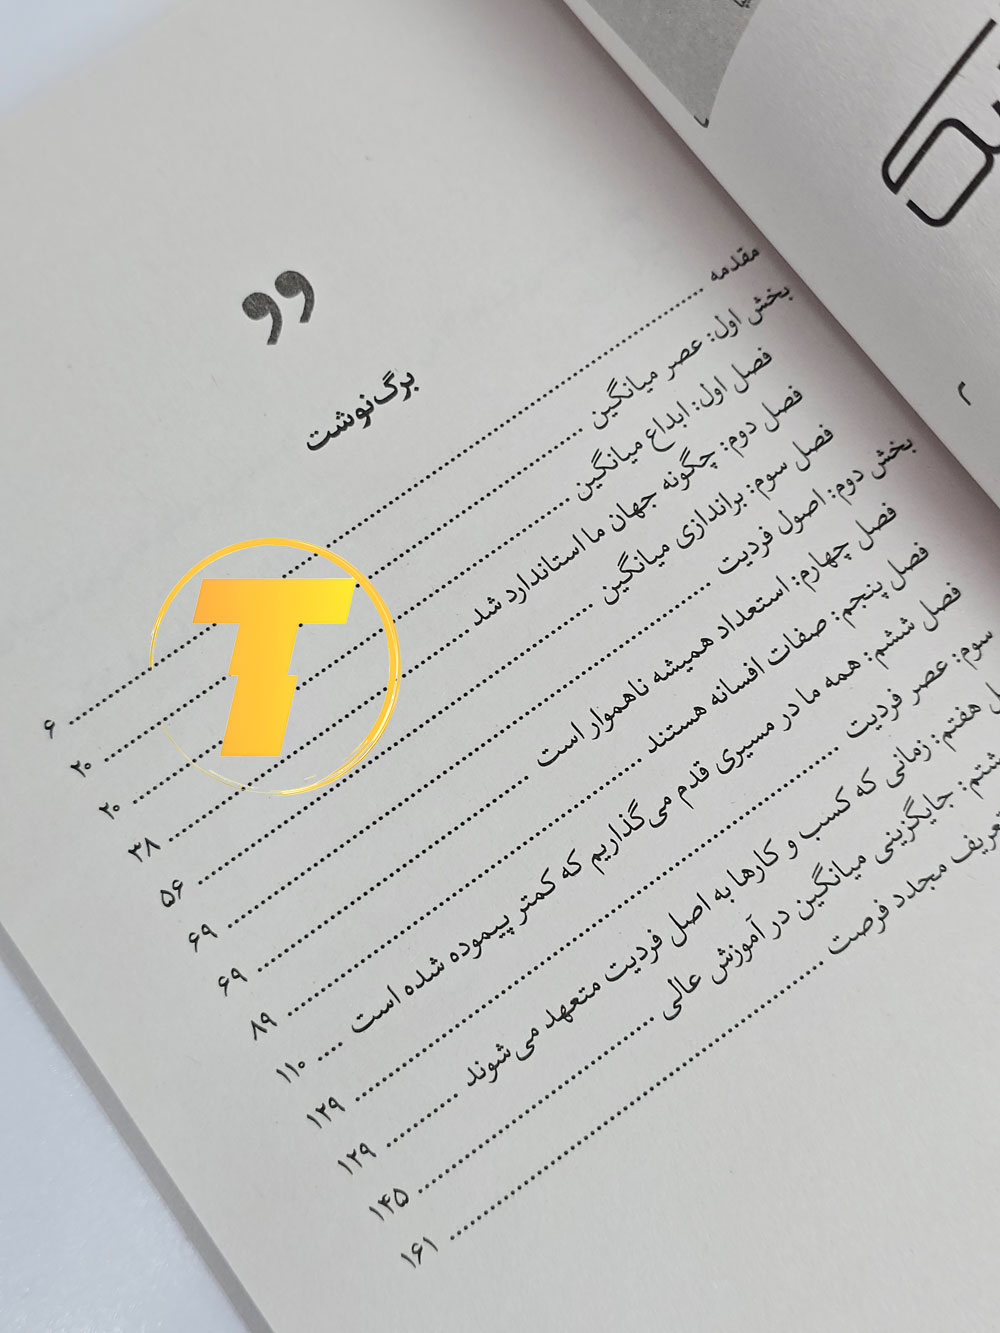 برگ‌نوشت
مقدمه ........ ۶
بخش اول: عصر میانگین ........ ۲۰
فصل اول: ابداع میانگین ........ ۲۰
فصل دوم: چگونه جهان ما استاندارد شد ........ ۳۸
فصل سوم: براندازی میانگین ........ ۵۶
بخش دوم: اصول فردیت ........ ۶۹
فصل چهارم: استعداد همیشه ناهموار است ........ ۶۹
فصل پنجم: صفات افسانه هستند ........ ۸۹
فصل ششم: همه ما در مسیری قدم می‌گذاریم که کمتر پیموده شده است .... ۱۱۰
سوم: عصر فردیت ........ ۱۲۹
هفتم: زمانی که کسب و کارها به اصل فردیت متعهد می‌شوند ........ ۱۲۹
جایگزینی میانگین در آموزش عالی ........ ۱۴۵
مجدد فرصت ........ ۱۶۱
T